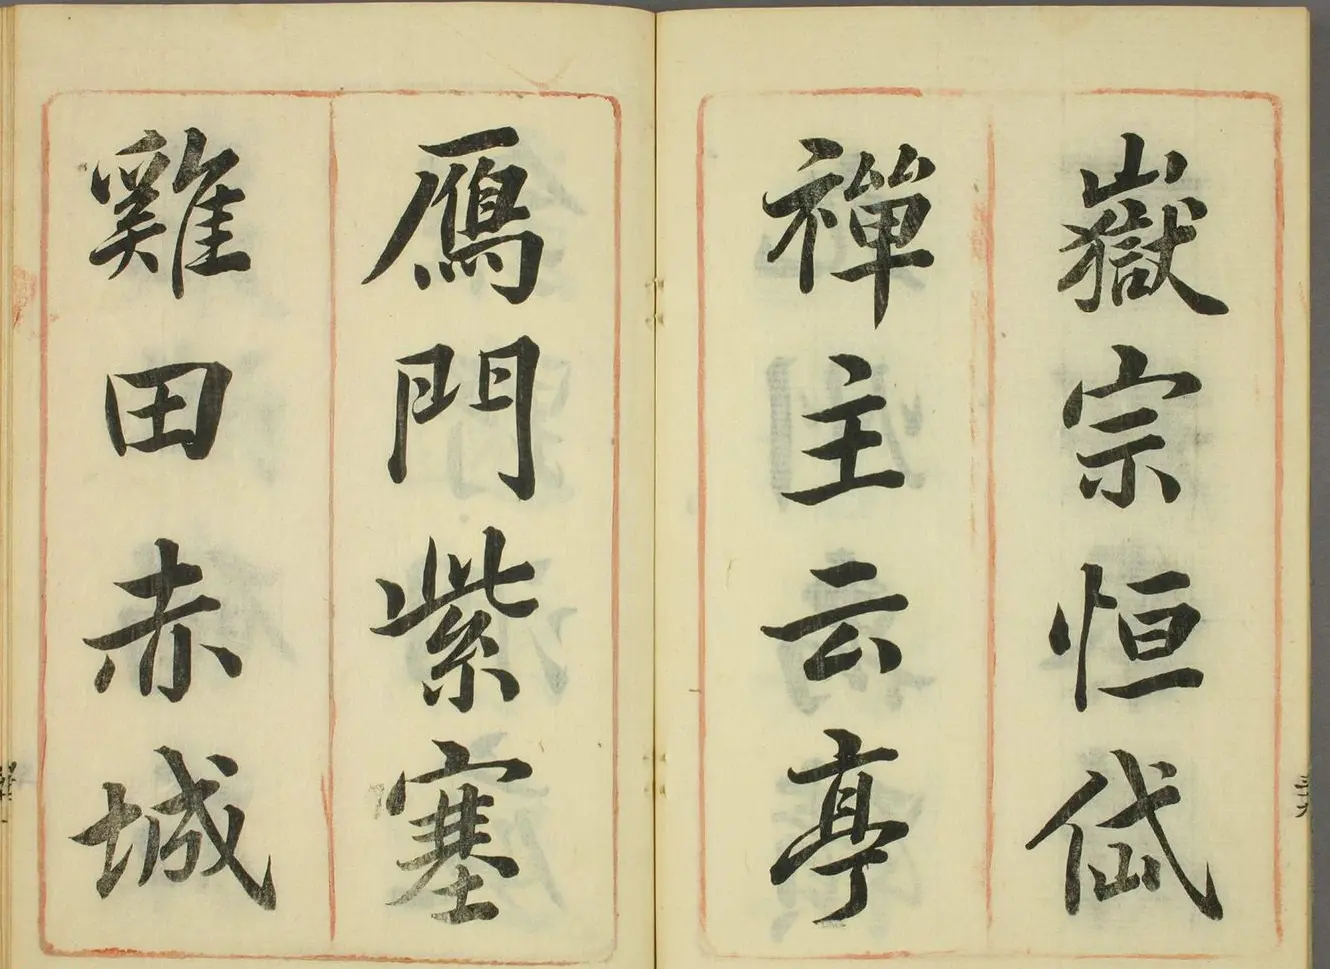 嶽宗恒岱
禪主云亭
鴈門紫塞
雞田赤城